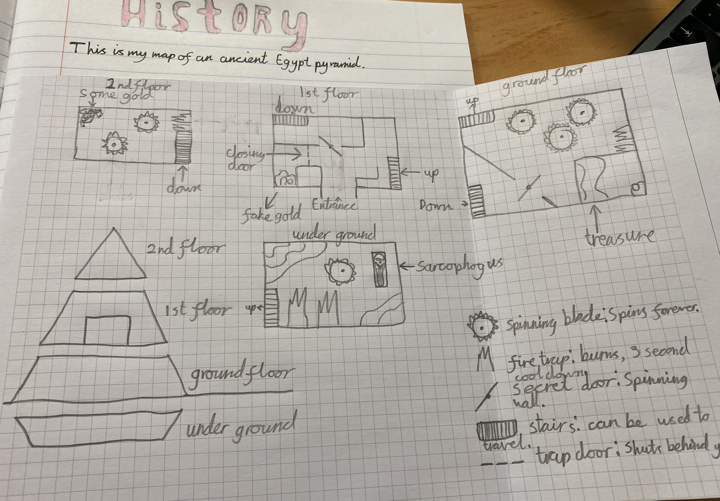 History
This is my map of an ancient Egypt pyramid.
2nd floor
some gold
down
1st floor
down
closing
door
up
Entrance
fake gold
ground floor
up
Down
treasure
under ground
Sarcophogus
up
2nd floor
1st floor
ground floor
under ground
spinning blade: Spins forever.
fire trap: burns, 3 second
cool down
secret door: Spinning
wall.
stairs: can be used to
travel.
trap door: Shuts behind y